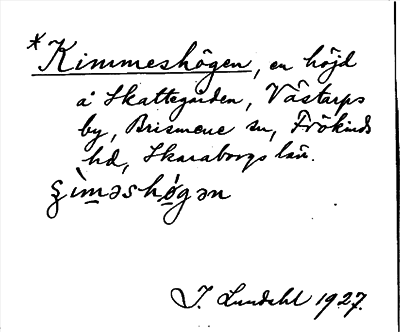 *Kimmeshögen, en höjd
å Skattegården, Västarps
by, Brismene sn, Frökinds
hd, Skaraborgs län.
ʒ̀iməshø̀gən
J. Lundahl 1927.